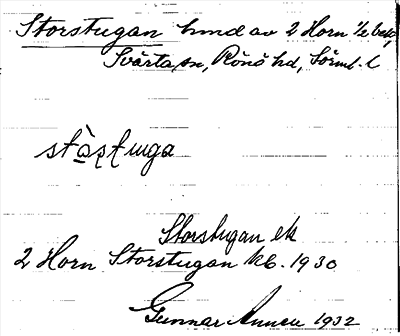 Storstugan hmd av 2 Horn 1/2
Svärta sn, Rönö hd, Sörml. l
Storstugan ek
2 Horn Storstugan kb. 1930
Gunnar 1932